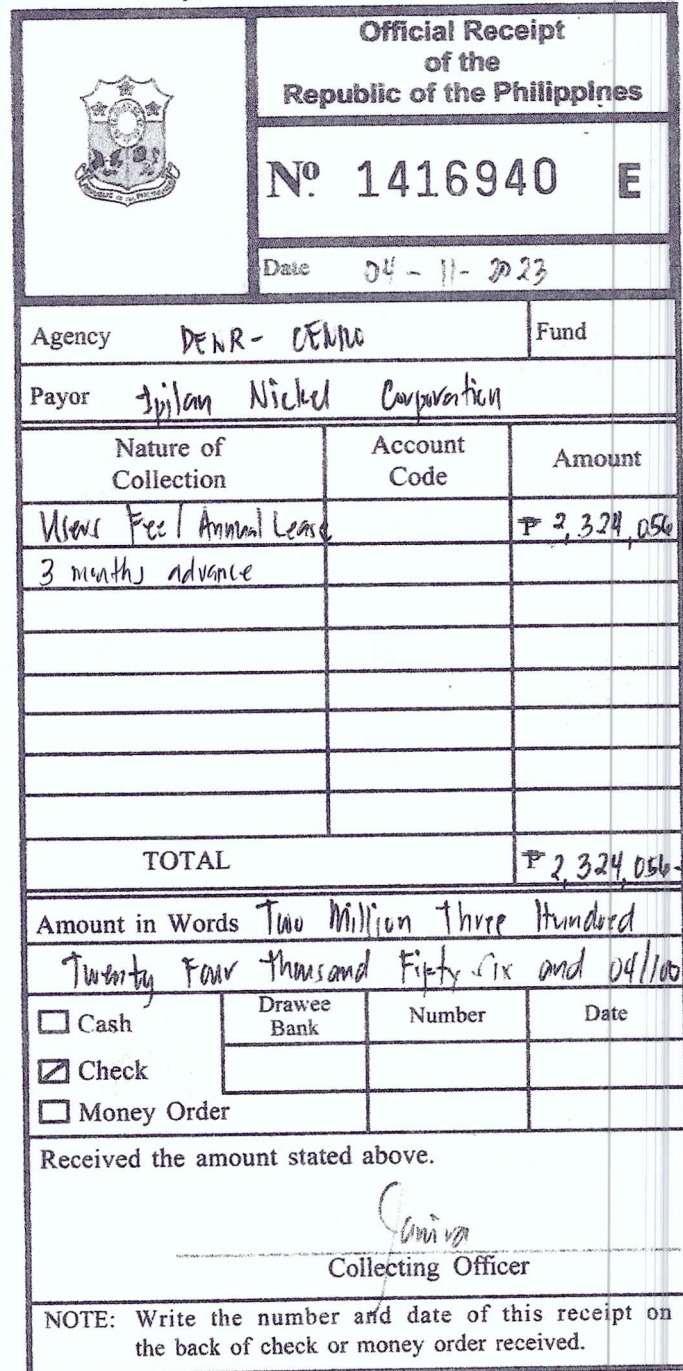 Official Receipt
of the
Republic of the Philippines
Nº 1416940 E
Date 04-11-2023
Agency DENR- CENRO
Fund
Payor Ipilan Nickel Corporation
Nature of Collection
Account Code
Amount
Users Fee / Annual Lease ₱ 2,324,056
3 months advance
TOTAL ₱ 2,324,056-
Amount in Words Two Million Three Hundred
Twenty Four Thousand Fifty Six and 04/100
Cash
Drawee Bank
Number
Date
Check
Money Order
Received the amount stated above.
Collecting Officer
NOTE: Write the number and date of this receipt on
the back of check or money order received.